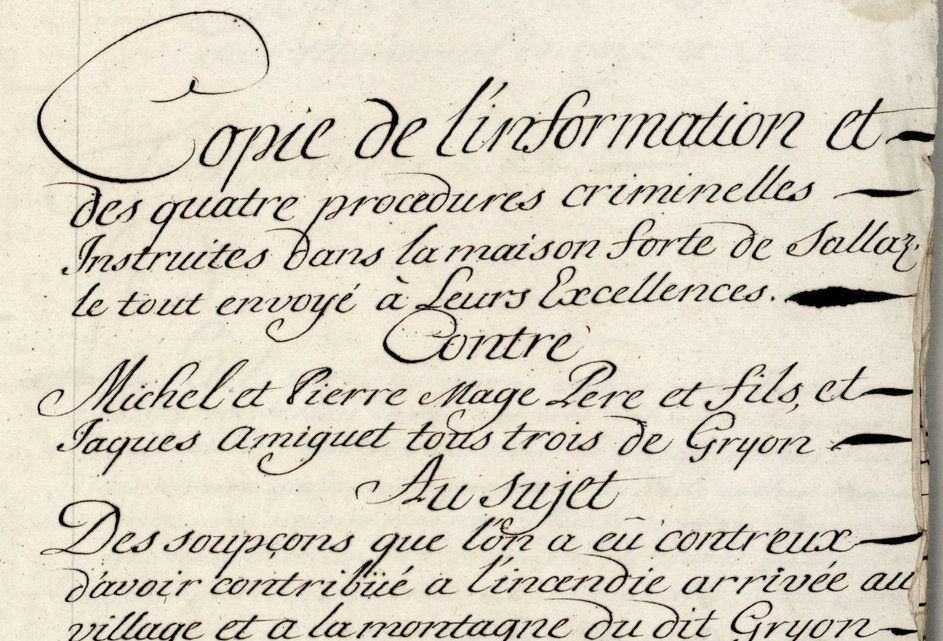 Copie de l'information et
des quatre procedures criminelles
Instruites dans la maison forte de Sallaz.
le tout envoyé à Leurs Excellences.
Contre
Michel et Pierre Mage Pere et fils, et
Jaques Amiguet tous trois de Gryon.
Au sujet
Des soupçons que l'on a eû contreux
d'avoir contribüé a l'incendie arrivée au
village et a la montagne du dit Gryon